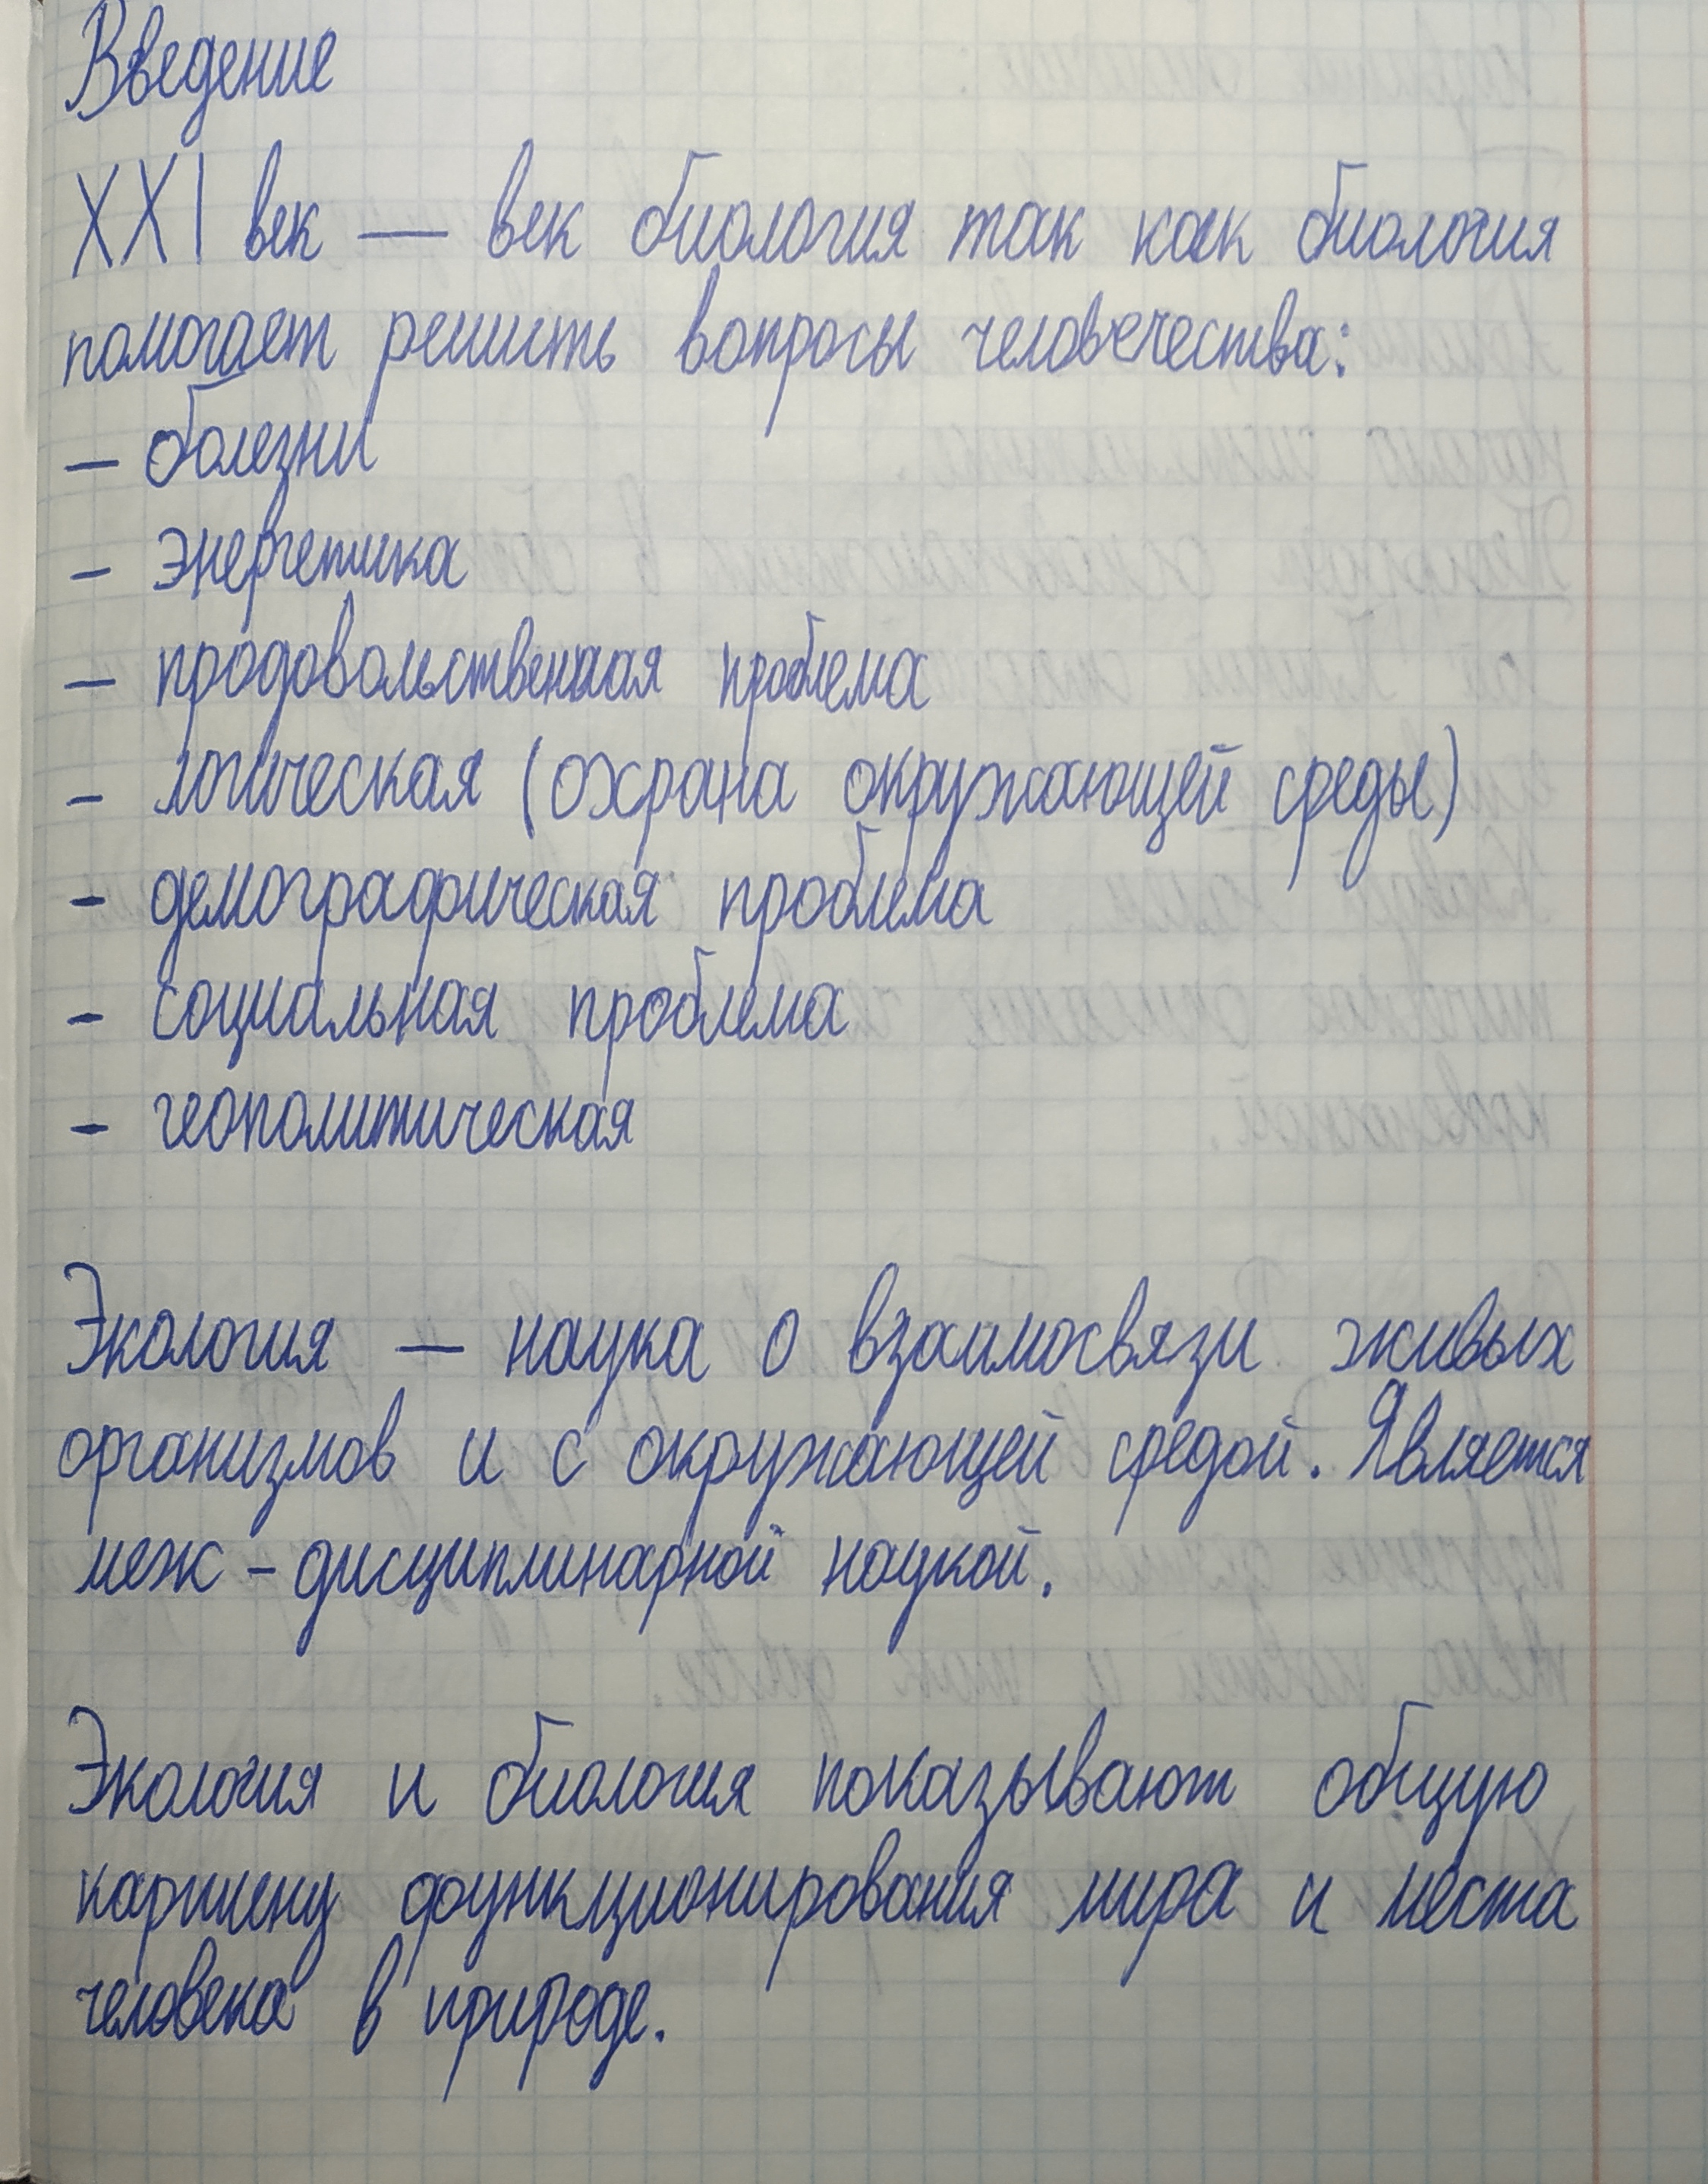 Введение
XXI век — век биология так как биология
помогает решить вопросы человечества:
– болезни
– энергетика
– продовольственная проблема
– логическая (охрана окружающей среды)
– демографическая проблема
– социальная проблема
– геополитическая
Экология — наука о взаимосвязи живых
организмов и с окружающей средой. Является
меж – дисциплинарной наукой.
Экология и биология показывают общую
картину функционирования мира и места
человека в природе.